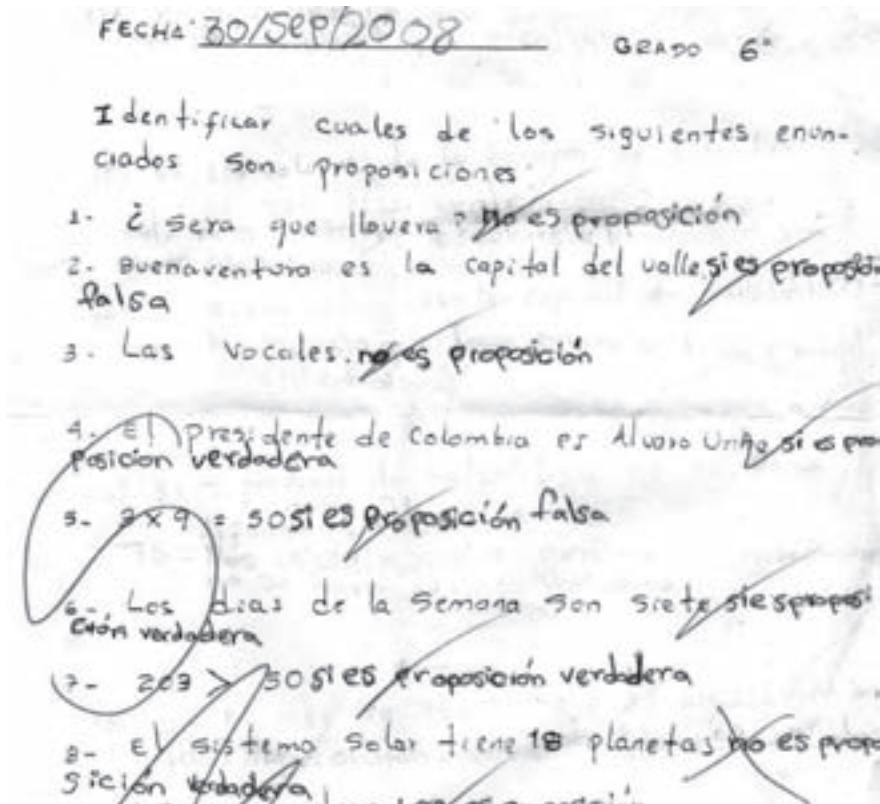 FECHA: 30/Sep/2008 GRADO 6°
Identificar cuales de los siguientes enun-
ciados son proposiciones:
1- ¿ sera que llovera? No es proposición
2- Buenaventura es la capital del valle, si es proposición
falsa
3- Las vocales. no es proposición
4- El presidente de Colombia es Alvaro Uribe si es pro
posición verdadera
5- 3 x 9 = 50 si es Proposición falsa
6- Los dias de la semana son siete si es proposi
ción verdadera
7- 203 > 50 si es proposición verdadera
8- El sistema solar tiene 18 planetas no es propo
sición verdadera
es proposición